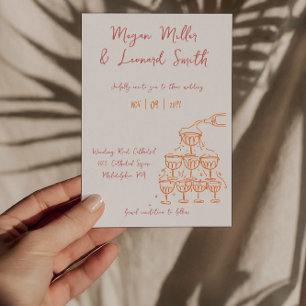 Megan Miller
& Leonard Smith
Joyfully invite you to their wedding
NOV | 09 |
Wending Road Cathedral
Cathedral Square
Philadelphia PA
formal invitation to follow